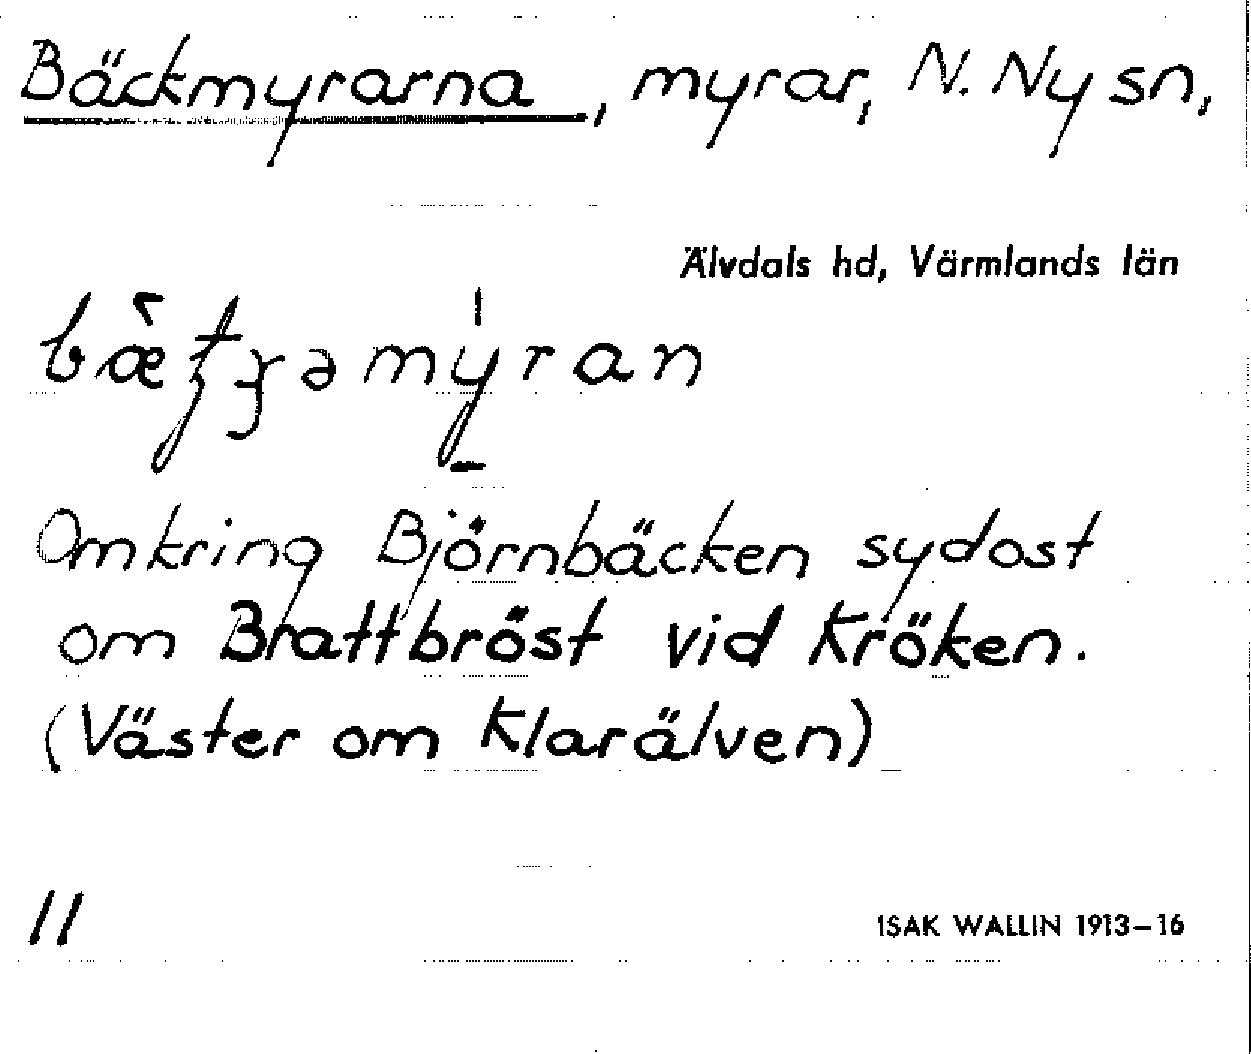 Bäckmyrarna, myrar, N. Ny sn,
Älvdals hd, Värmlands län
Omkring Björnbäcken sydost
om Brattbröst vid Kröken.
(Väster om Klarälven)
11
ISAK WALLIN 1913–16